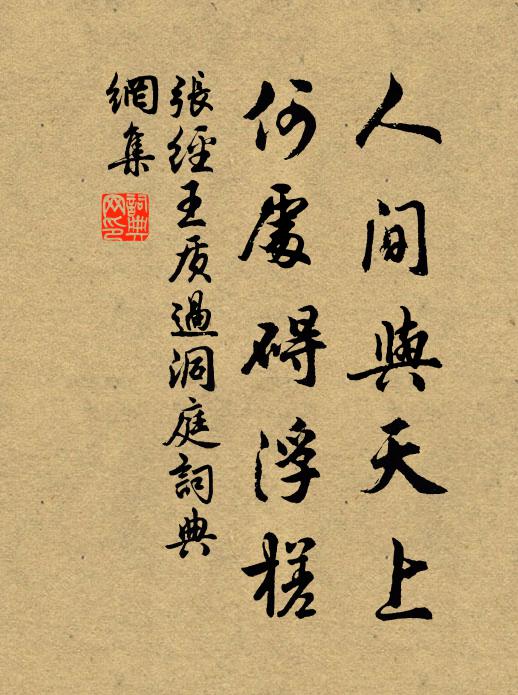 人間與天上
何處碍浮槎
張經王质過洞庭詞典
網集
詞典
网印